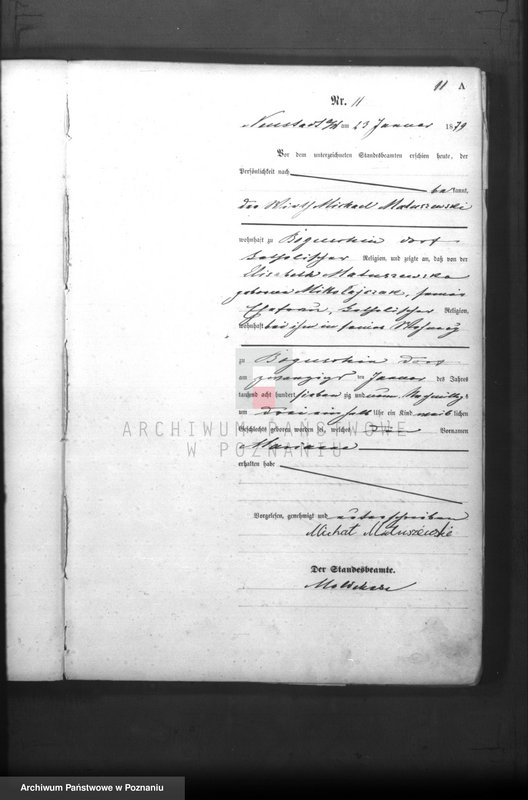 11 A
Nr. 11
Neustadt a/W am 23 Januar 1879
Vor dem unterzeichneten Standesbeamten erschien heute, der
Persönlichkeit nach
bekannt,
der Wirth Michael Matuszewski
wohnhaft zu Boguschin dorf
katholischer Religion, und zeigte an, daß von der
Elisabeth Matuszewska
geborene Mikolajczak, seiner
Ehefrau, katholischer Religion,
wohnhaft bei ihm in seiner Wohnung
zu Boguschin dorf
am zwanzigsten Januar des Jahres
tausend acht hundert siebenzig und neun Nachmittags
um drei ein halb Uhr ein Kind weiblichen
Geschlechts geboren worden sei, welches den Vornamen
Marianna
erhalten habe
Vorgelesen, genehmigt und unterschrieben
Michał Matuszewski
Der Standesbeamte.
ARCHIWUM PAŃSTWOWE
W POZNANIU
Archiwum Państwowe w Poznaniu